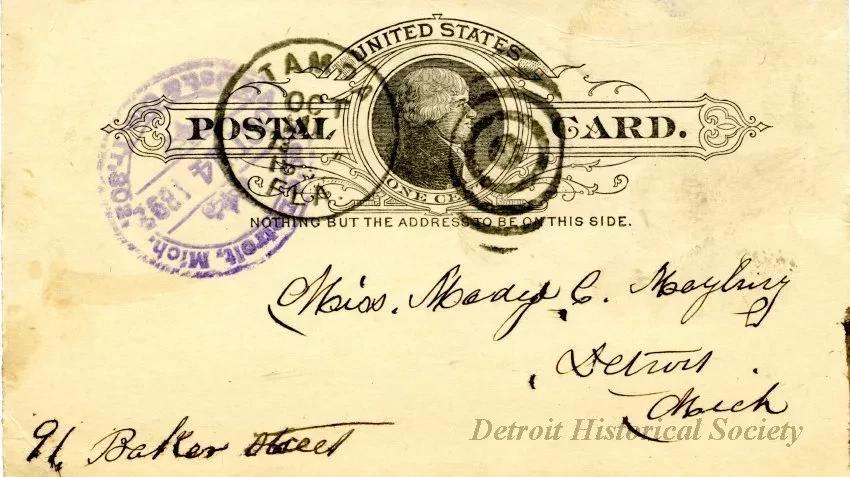 UNITED STATES
POSTAL CARD.
ONE CENT
NOTHING BUT THE ADDRESS TO BE ON THIS SIDE.
TAMPA
OCT
FLA.
Detroit, Mich.
4 1892
Miss. Madge C. Maybury
Detroit
Mich
91 Baker Street
Detroit Historical Society